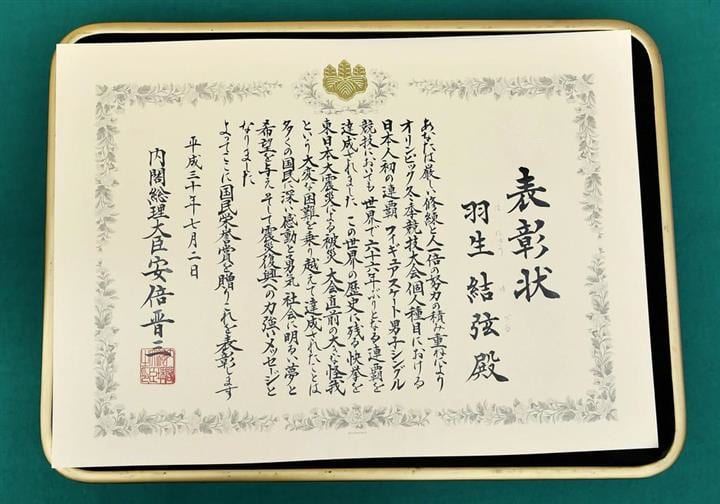 表彰状
羽生結弦殿
あなたは厳しい修練と人一倍の努力の積み重ねにより
オリンピック冬季競技大会個人種目における
日本人初の連覇 フィギュアスケート男子シングル
競技においても世界で六十六年ぶりとなる連覇を
達成されました この世界の歴史に残る快挙を
東日本大震災による被災 大会直前の大きな怪我
という大変な困難を乗り越えて達成されたことは
多くの国民に深い感動と勇気 社会に明るい夢と
希望を与え そして震災復興への力強いメッセージと
なりました
よってここに国民栄誉賞を贈りこれを表彰します
平成三十年七月二日
内閣総理大臣 安倍晋三